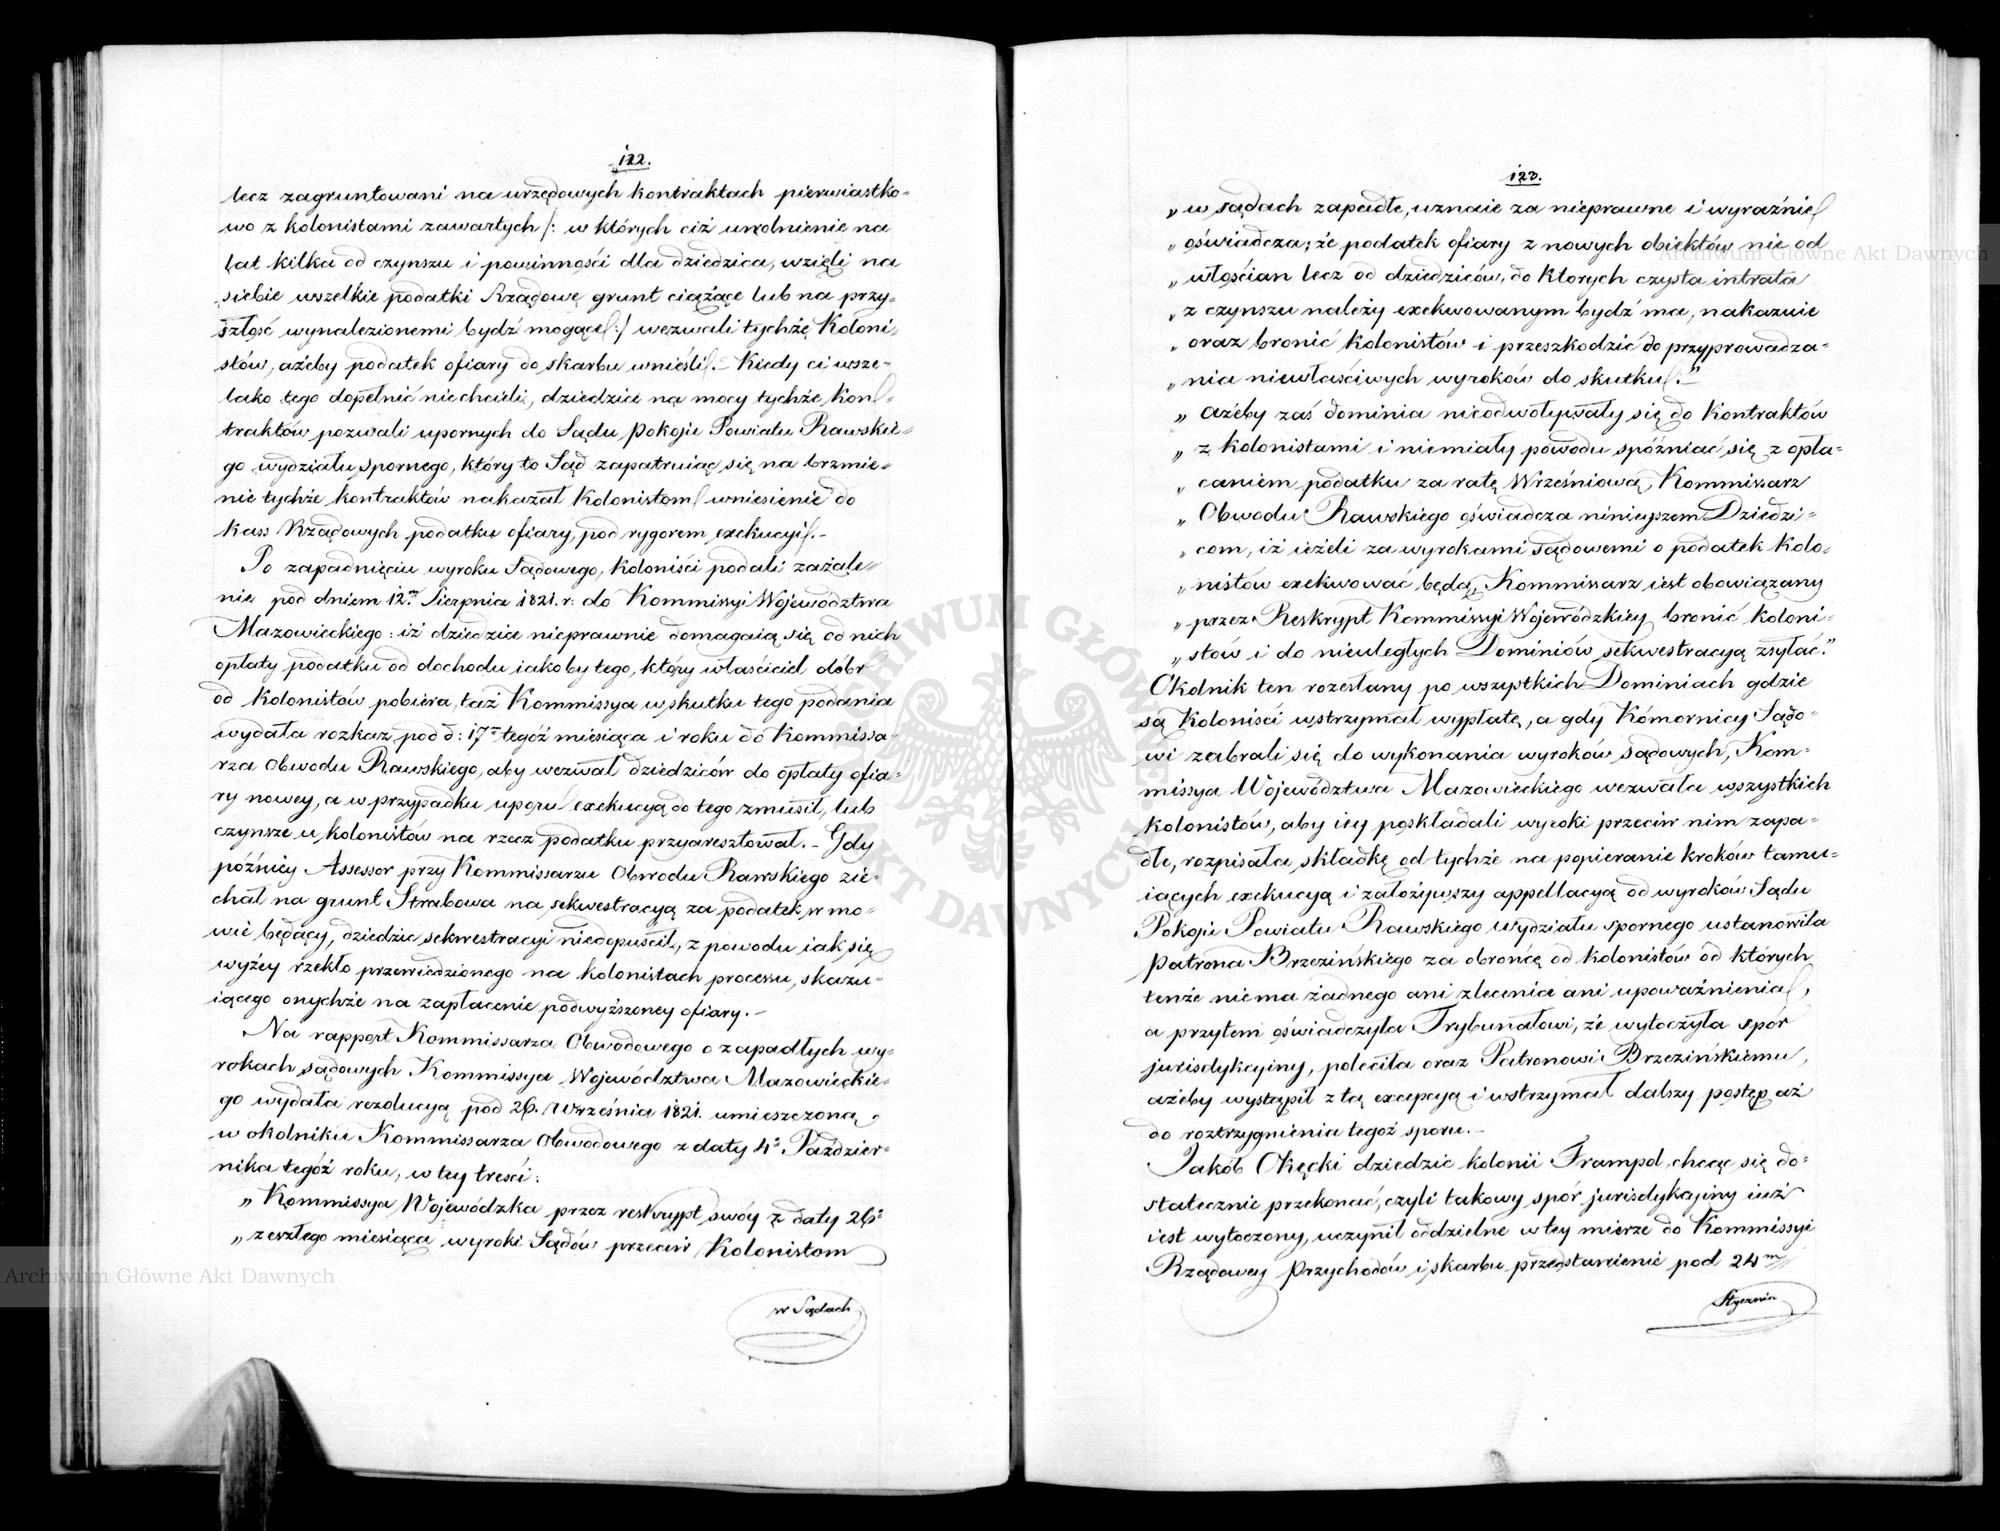 122.
lecz zagruntowani na urzędowych kontraktach pierwiastko-
wo z kolonistami zawartych /: w których ciż uwolnienie na
lat kilka od czynszu i powinności dla dziedzica, wzięli na
siebie wszelkie podatki Rządowe grunt ciążące lub na przy-
szłość wynalezionemi bydź mogące :/ wezwali tychże Koloni-
stów, ażeby podatek ofiary do skarbu wnieśli. – Kiedy ci wsze-
lako tego dopełnić niechcieli, dziedzice na mocy tychże kon-
traktów pozwali upornych do Sądu Pokoju Powiatu Rawskie-
go wydziału spornego, który to Sąd zapatruiąc się na brzmie-
nie tychże kontraktów nakazał Kolonistom wniesienie do
kass Rządowych podatku ofiary, pod rygorem exekucyi. –
Po zapadnięciu wyroku Sądowego, koloniści podali zażale-
nie pod dniem 12m Sierpnia 1821. r: do Kommissyi Województwa
Mazowieckiego: iż dziedzice nieprawnie domagaią się od nich
opłaty podatku od dochodu iakoby tego, który właściciel dóbr
od kolonistów pobiera, taż Kommissya w skutku tego podania
wydała rozkaz pod d: 17m tegóż miesiąca i roku do Kommissa-
rza Obwodu Rawskiego, aby wezwał dziedziców do opłaty ofia-
ry nowey, a w przypadku uporu exekucyą do tego zmusił, lub
czynsze u kolonistów na rzecz podatku przyaresztował. – Gdy
późniey Assessor przy Kommissarzu Obwodu Rawskiego zie-
chał na grunt Strabowa na sekwestracyą za podatek w mo-
wie będący, dziedzic sekwestracyi niedopuścił, z powodu iak się
wyżey rzekło przewiedzionego na kolonistach processu, skazu-
iącego onychże na zapłacenie podwyższoney ofiary. –
Na rapport Kommissarza Obwodowego o zapadłych wy-
rokach sądowych Kommissya Województwa Mazowieckie-
go wydała rezolucyą pod 26. Września 1821. umieszczoną
w okolniku Kommissarza Obwodowego z daty 4o Paździer-
nika tegóż roku, w tey treści:
„ Kommissya Wojewódzka przez reskrypt swóy z daty 26o
„ zeszłego miesiąca wyroki Sądów przeciw Kolonistom
w Sądach
123.
„ w sądach zapadłe, uznaie za nieprawne i wyraźnie
„ oświadcza; że podatek ofiary z nowych obiektów nie od
„ włościan lecz od dziedziców, do ktorych czysta intrata
„ z czynszu należy exekwowanym bydź ma, nakazuie
„ oraz bronić kolonistów i przeszkodzić do przyprowadza-
„ nia niewłaściwych wyroków do skutku. –”
„ ażeby zaś dominia nieodwoływały się do kontraktów
„ z kolonistami i niemiały powodu spóźniać się z opła-
„ caniem podatku za ratę Wrześniową, Kommissarz
„ Obwodu Rawskiego oświadcza ninieyszem Dziedzi-
„ com, iż ieżeli za wyrokami sądowemi o podatek kolo-
„ nistów exekwować będą, Kommissarz iest obowiązany
„ przez Reskrypt Kommissyi Wojewódzkiey bronić koloni-
„ stów i do nieuległych Dominiów sekwestracyą zsyłać.”
Okolnik ten rozesłany po wszystkich Dominiach gdzie
są koloniści wstrzymał wypłatę, a gdy Komornicy Sądo-
wi zabrali się do wykonania wyroków sądowych, Kom-
missya Województwa Mazowieckiego wezwała wszystkich
kolonistów, aby iey poskładali wyroki przeciw nim zapa-
dłe, rozpisała składkę od tychże na popieranie kroków tamu-
iących exekucyą i założywszy appellacyą od wyroków Sądu
Pokoju Powiatu Rawskiego wydziału spornego ustanowiła
Patrona Brzezińskiego za obrońcę od kolonistów od których
tenże niema żadnego ani zlecenia ani upoważnienia,
a przytem oświadczyła Trybunałowi, że wytoczyła spór
jurisdykcyiny, poleciła oraz Patronowi Brzezińskiemu,
ażeby wystąpił z tą excepcyą i wstrzymał dalszy postęp aż
do roztrzygnienia tegoż sporu. –
Jakób Okęcki dziedzic kolonii Frampol, chcąc się do-
statecznie przekonać, czyli takowy spór jurisdykcyiny iuż
iest wytoczony, uczynił oddzielne w tey mierze do Kommissyi
Rządowey Przychodów i skarbu przedstawienie pod 24m
Stycznia
Archiwum Główne Akt Dawnych
Archiwum Główne Akt Dawnych
ARCHIWUM GŁÓWNE AKT DAWNYCH